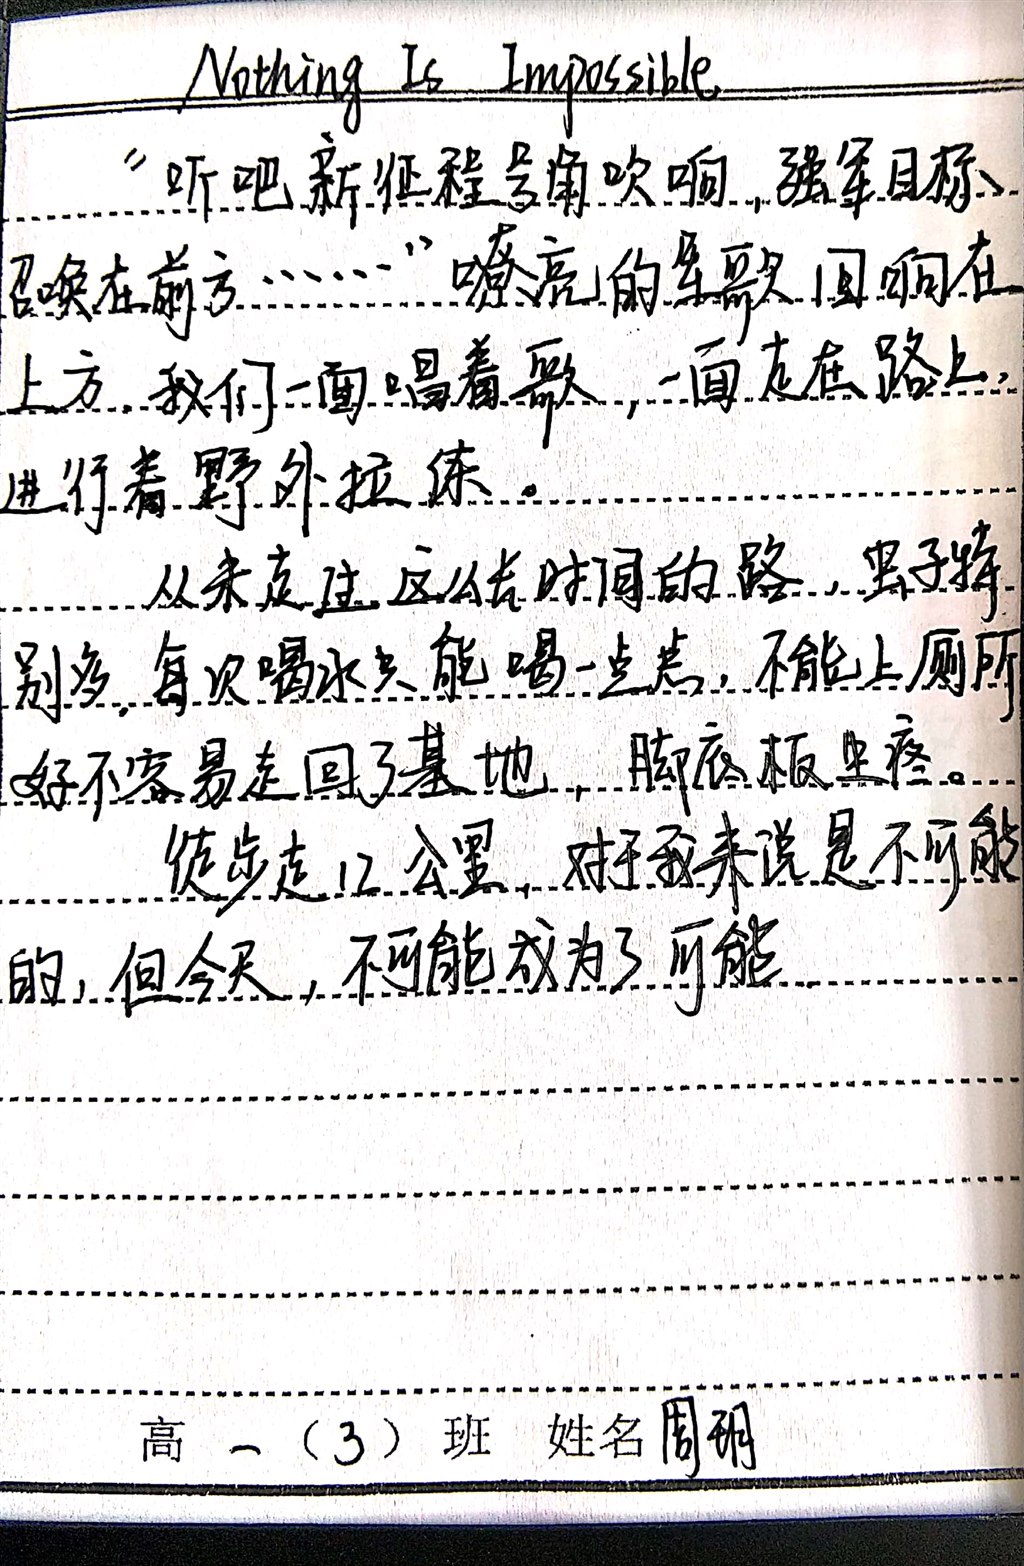 Nothing Is Impossible
“听吧新征程号角吹响，强军目标
召唤在前方……”嘹亮的军歌回响在
上方，我们一面唱着歌，一面走在路上，
进行着野外拉练。
从未走过这么长时间的路，虫子特
别多，每次喝水只能喝一点点，不能上厕所
好不容易走回了基地，脚底板生疼。
徒步走12公里，对于我来说是不可能
的，但今天，不可能成为了可能
高一（3）班 姓名周玥